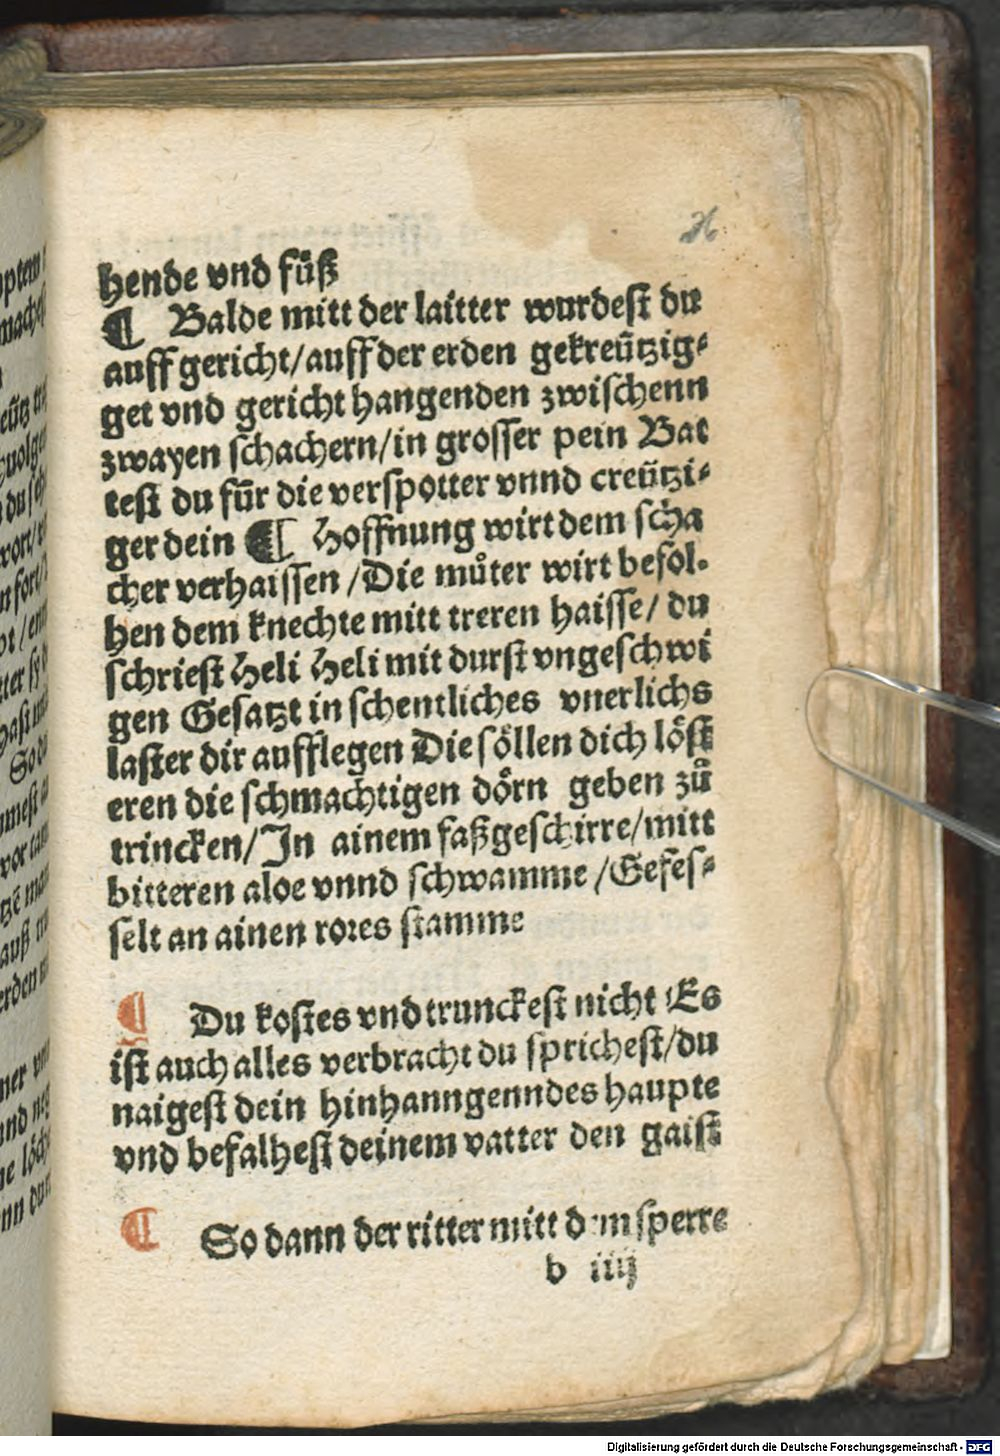 hende vnd füß
¶ Balde mitt der laitter wurdest du
auff gericht/auff der erden gekreützig⸗
get vnd gericht hangenden zwischenn
zwayen schachern/in grosser pein Bat
test du für die verspotter vnnd creützi⸗
ger dein ¶ Hoffnung wirt dem scha
cher verhaissen /Die muͦter wirt befol⸗
hen dem knechte mitt treren haisse/ du
schriest Heli Heli mit durst vngeschwi
gen Gesatzt in schentliches vnerlichs
laster dir aufflegen Die söllen dich löst
eren die schmachtigen dörn geben zuͦ
trincken/In ainem faßgeschirre/mitt
bitteren aloe vnnd schwamme /Gefes⸗
selt an ainen rores stamme
¶ Du kostes vnd trunckest nicht Es
ist auch alles verbracht du sprichest/du
naigest dein hinhanngenndes haupte
vnd befalhest deinem vatter den gaist
¶ So dann der ritter mitt dem sperre
b iiij
Digitalisierung gefördert durch die Deutsche Forschungsgemeinschaft - DFG